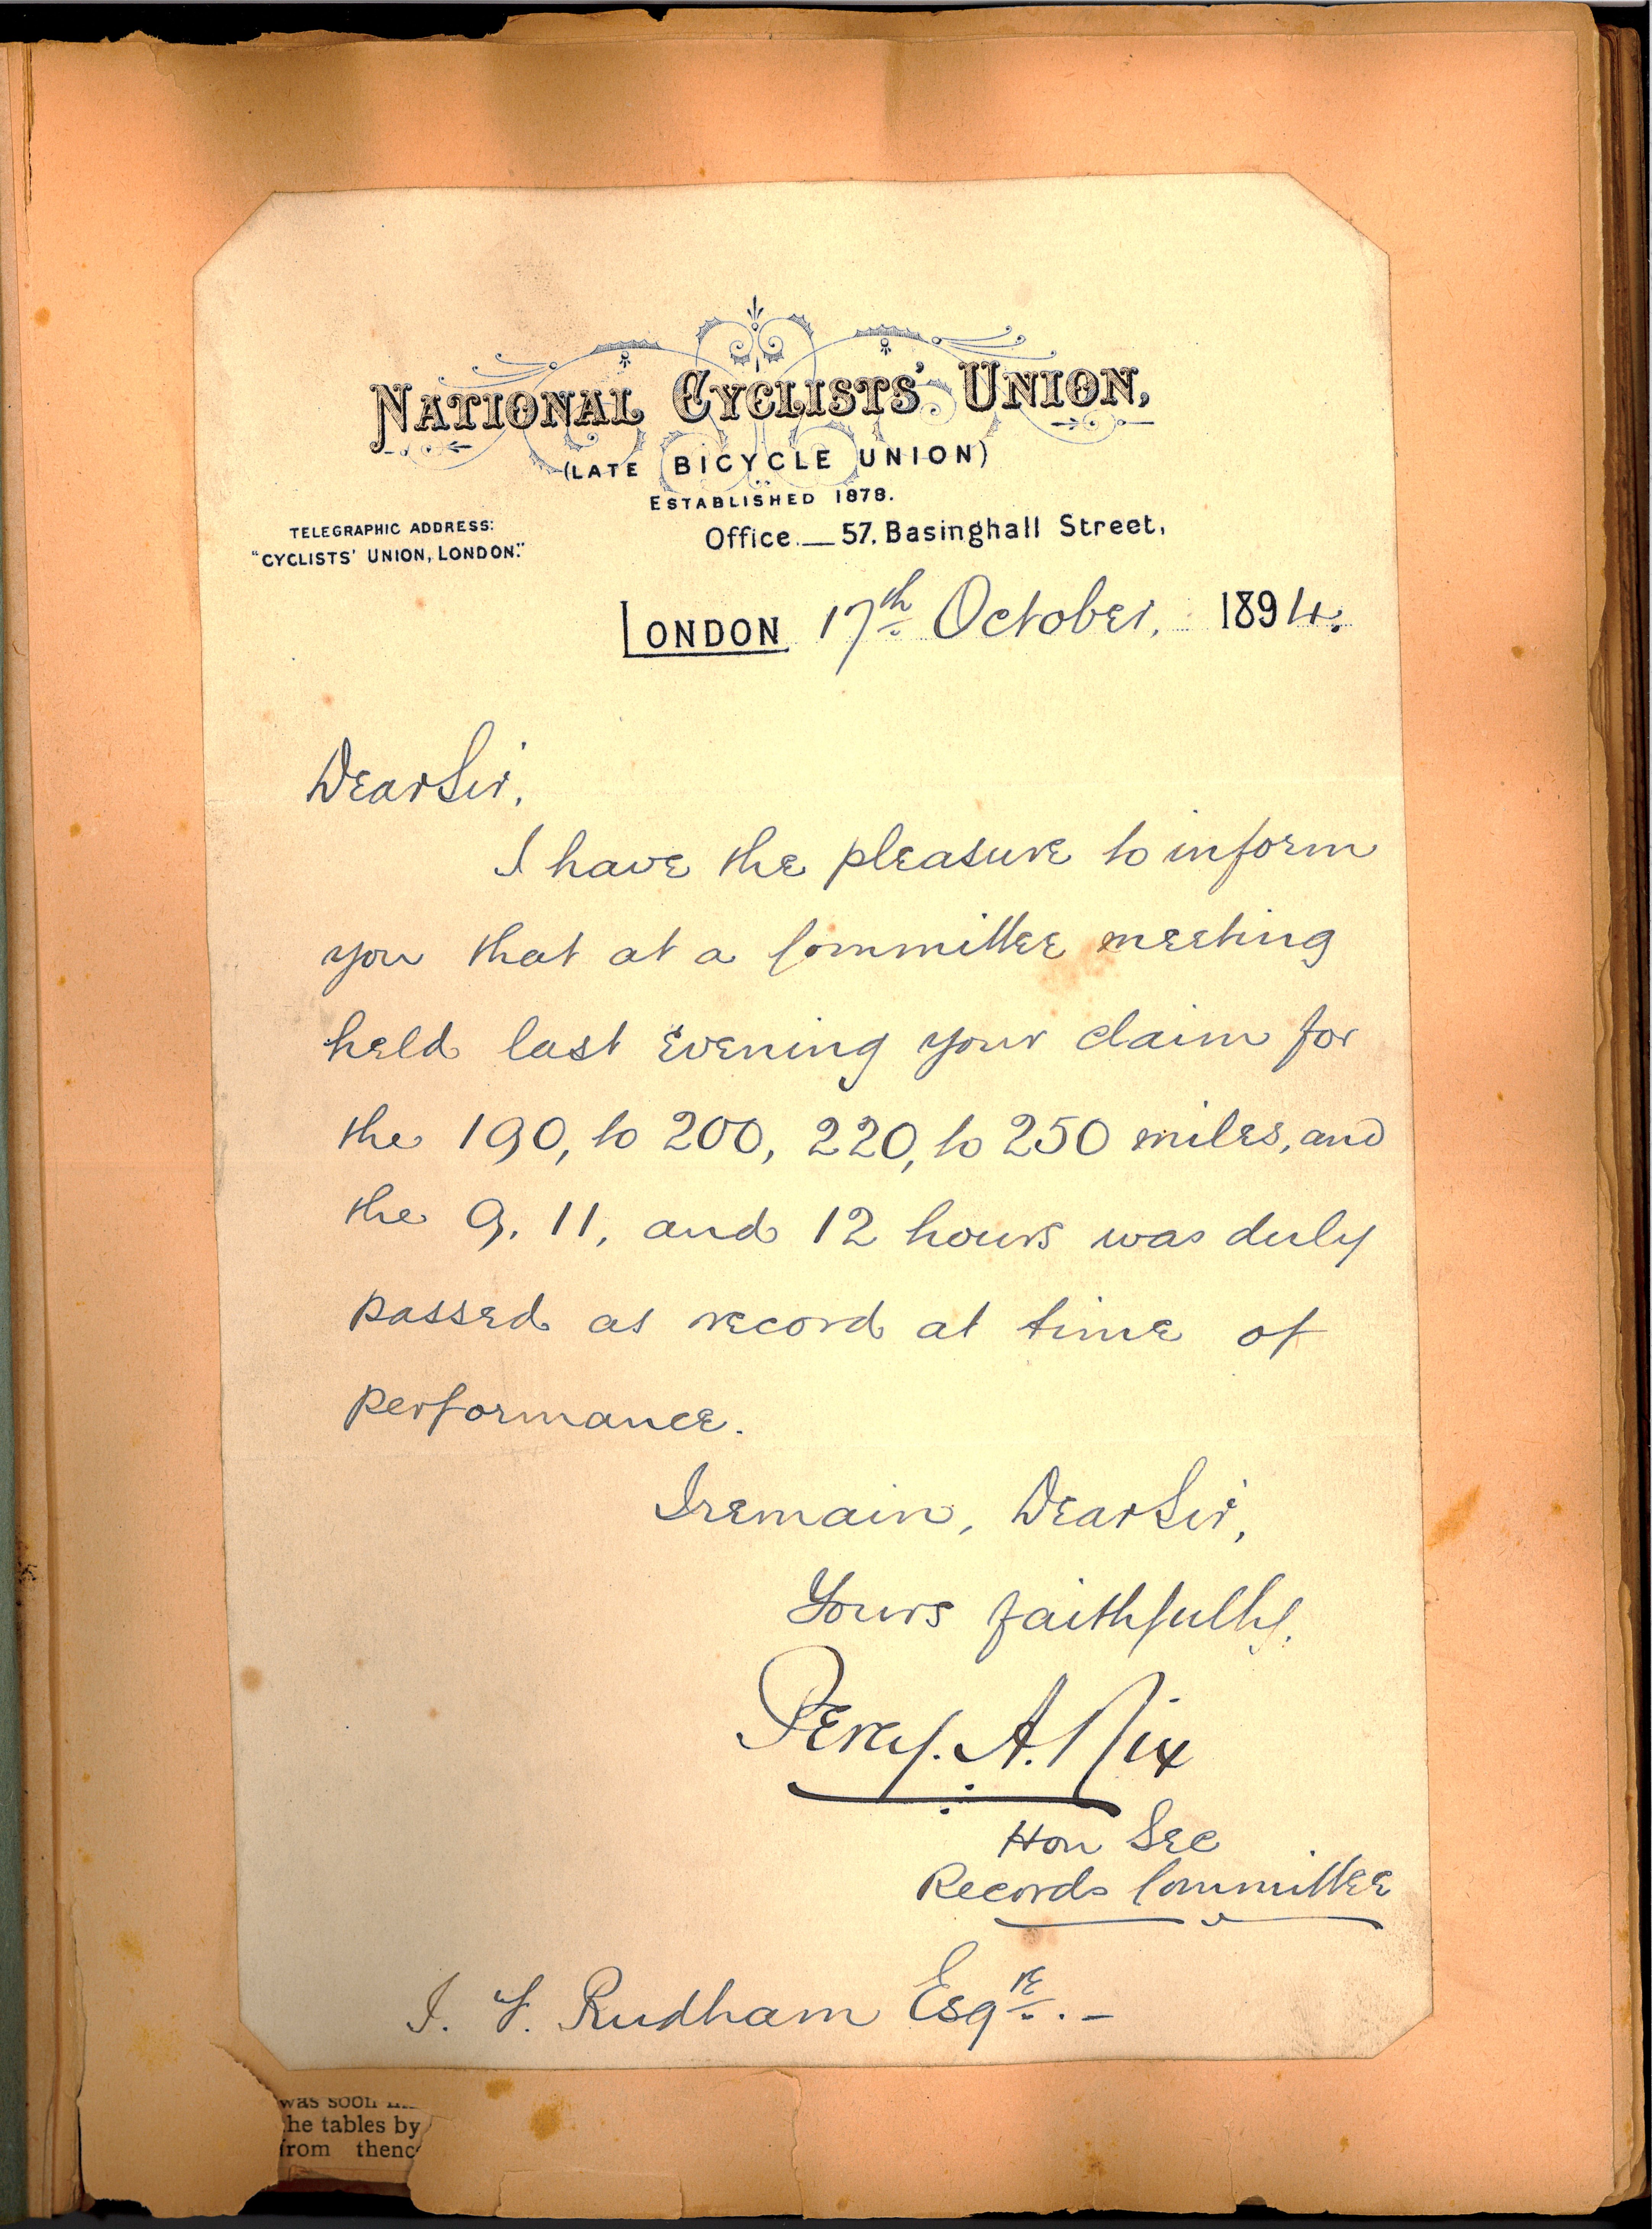 NATIONAL CYCLISTS' UNION,
(LATE BICYCLE UNION)
ESTABLISHED 1878.
TELEGRAPHIC ADDRESS:
"CYCLISTS' UNION, LONDON."
Office.— 57, Basinghall Street,
LONDON 17th October, 1894.
Dear Sir,
I have the pleasure to inform
you that at a Committee meeting
held last evening your claim for
the 190, to 200, 220, to 250 miles, and
the 9, 11, and 12 hours was duly
passed as record at time of
performance.
I remain, Dear Sir,
Yours faithfully,
Percy. A. Nix
Hon Sec
Records Committee
J. F. Rudham Esqre. -
was soon
he tables by
from thenc